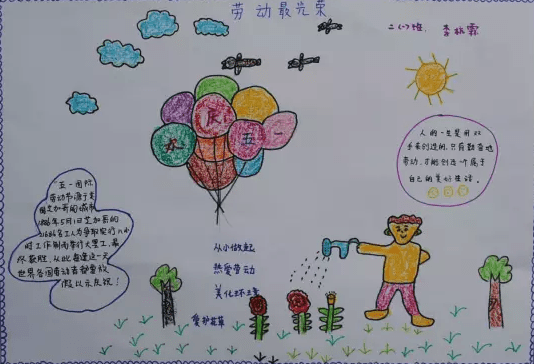 劳动最光荣
二(一)班: 李
庆
五一
人的一生是用双
手来创造的,只有勤奋地
劳动,才能创造一个属于
自己的美好生活。
五一国际
劳动节源于美
国芝加哥的城市
1886年5月1日芝加哥的
216000名工人为争取实行八小
时工作制而举行大罢工,最
后获胜,从此每逢这一天
世界各国劳动者都要放
假以示庆祝!
从小做起
热爱劳动
美化环境
爱护花草